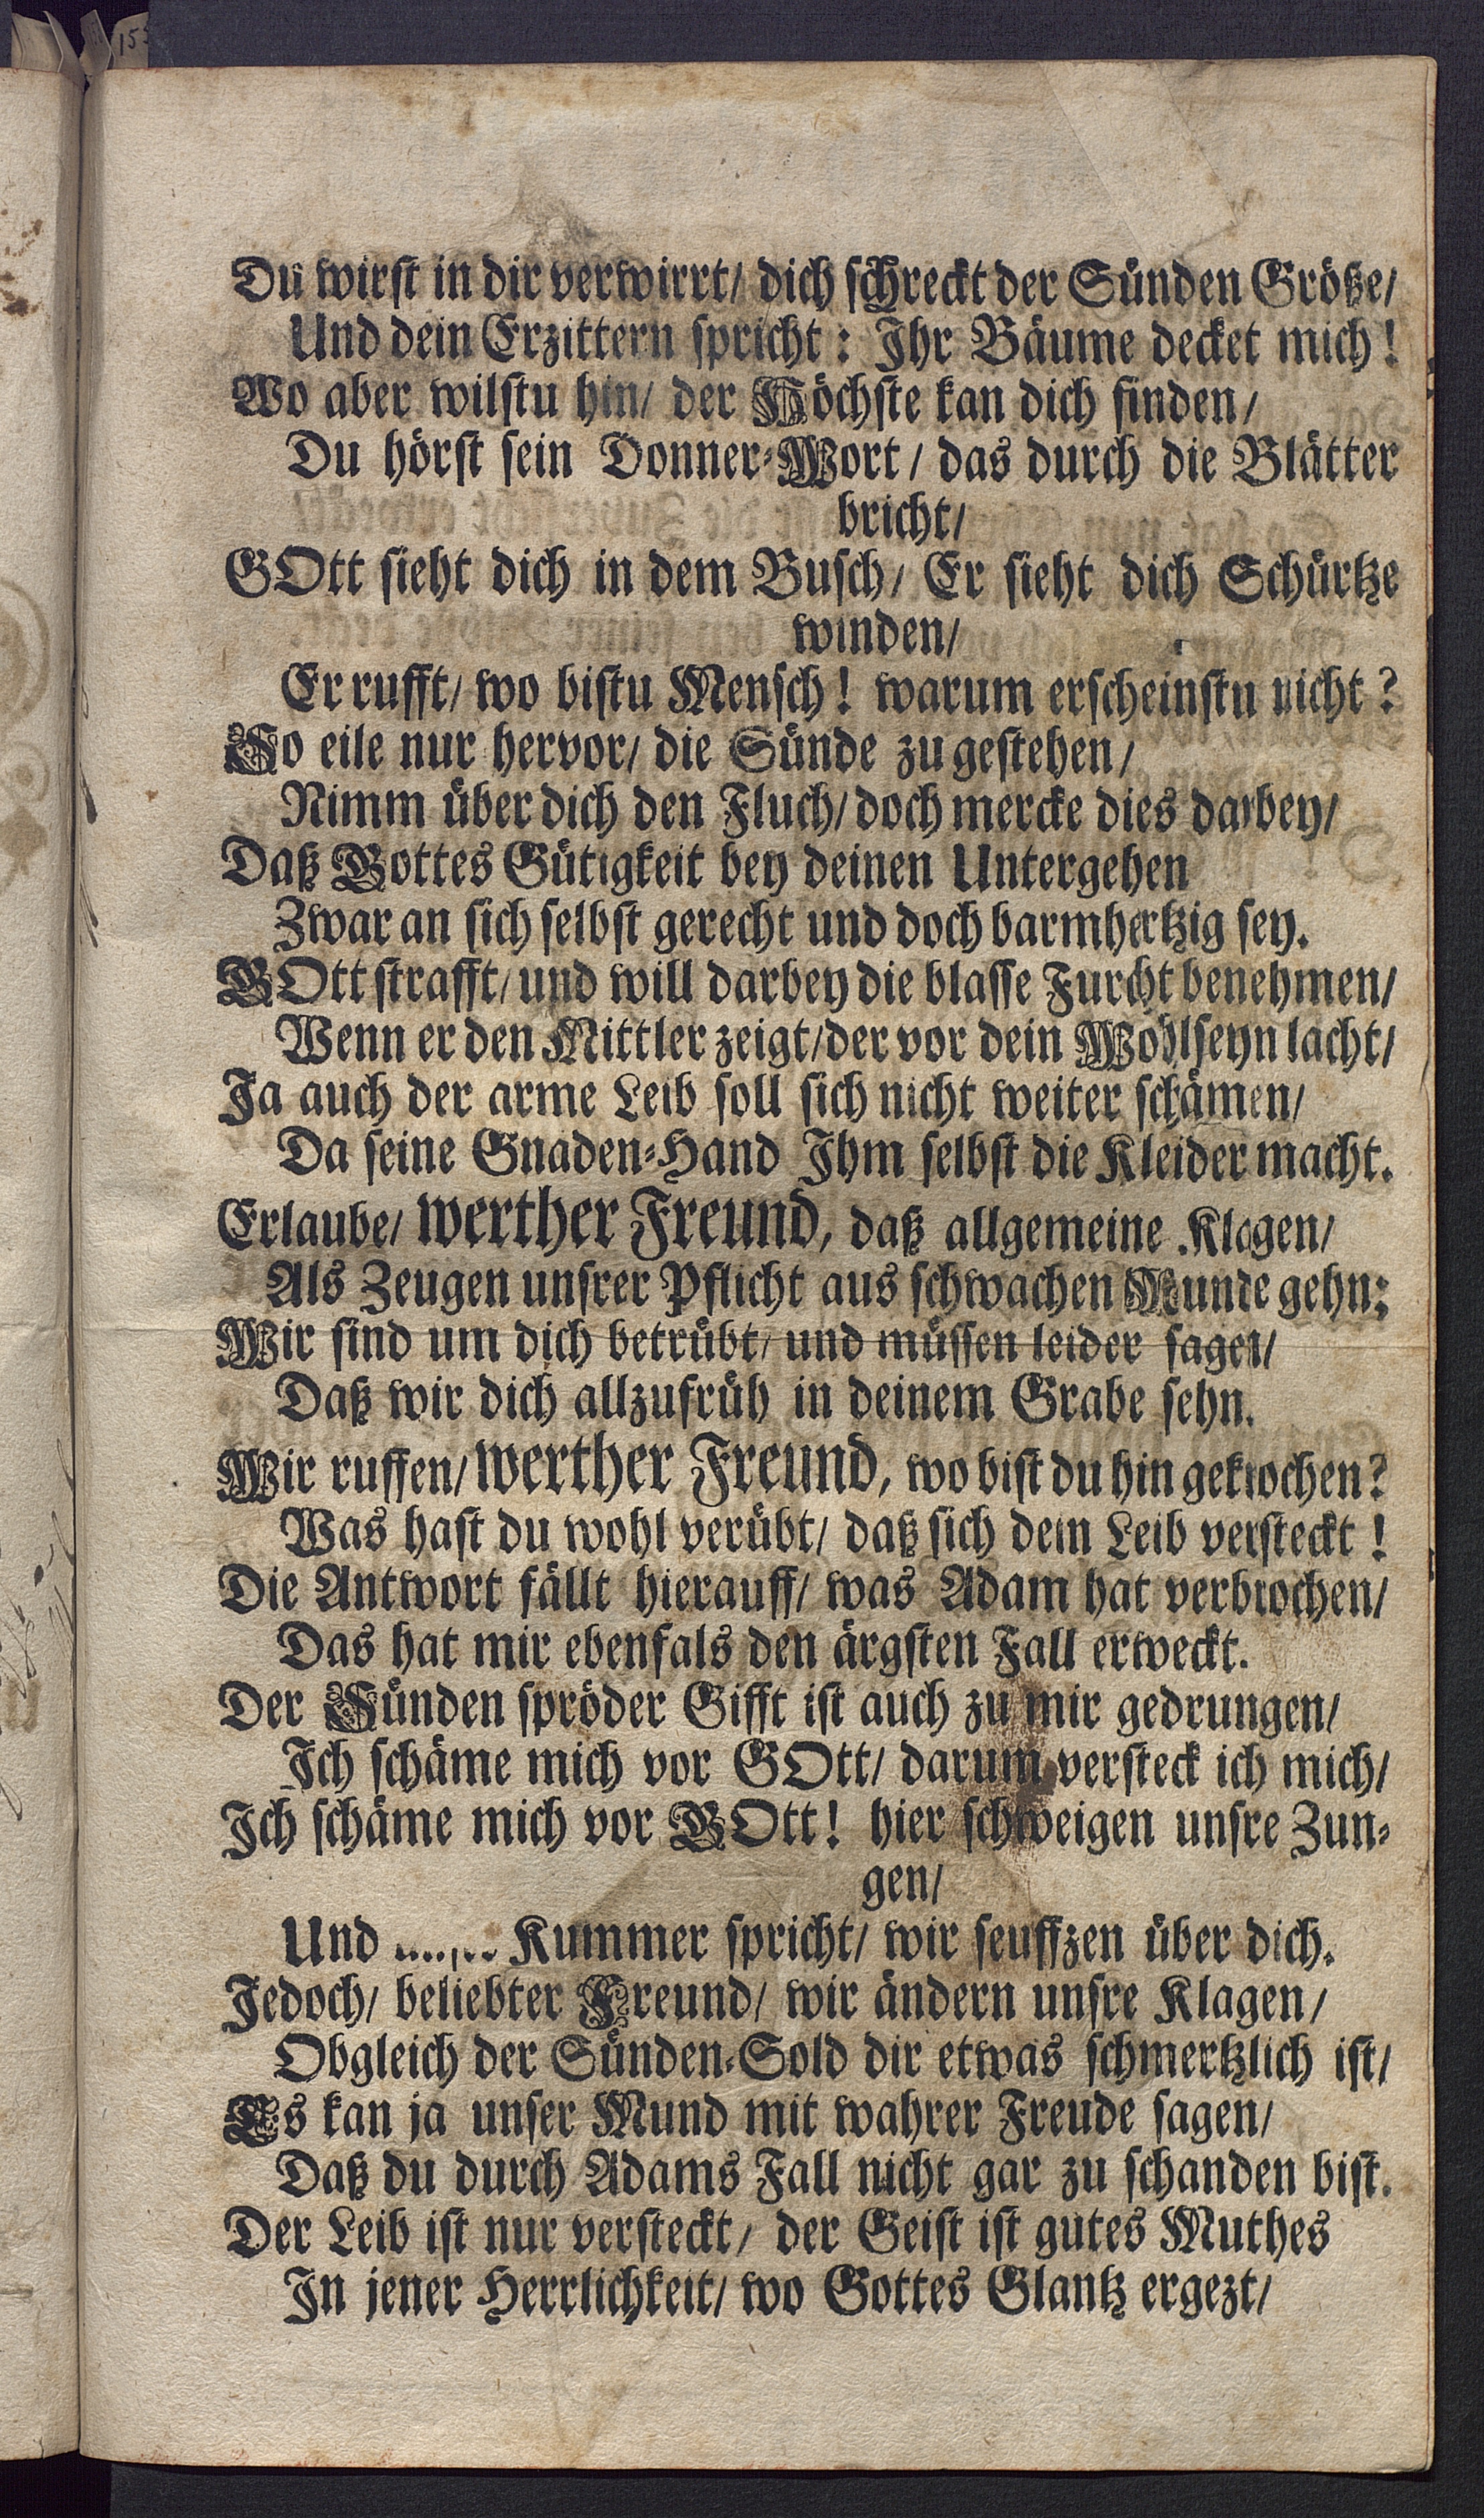 155
Du wirst in dir verwirrt/ dich schreckt der Sünden Größe/
Und dein Erzittern spricht: Ihr Bäume decket mich!
Wo aber wilstu hin/ der Höchste kan dich finden/
Du hörst sein Donner-Wort/ das durch die Blätter
bricht/
GOtt sieht dich in dem Busch/ Er sieht dich Schürtze
winden/
Er rufft/ wo bistu Mensch! warum erscheinstu nicht?
So eile nur hervor/ die Sünde zu gestehen/
Nimm über dich den Fluch/ doch mercke dies darbey/
Daß Gottes Gütigkeit bey deinen Untergehen
Zwar an sich selbst gerecht und doch barmhertzig sey.
GOtt strafft/ und will darbey die blasse Furcht benehmen/
Wenn er den Mittler zeigt/ der vor dein Wohlseyn lacht/
Ja auch der arme Leib soll sich nicht weiter schämen/
Da seine Gnaden-Hand Ihm selbst die Kleider macht.
Erlaube/ werther Freund, daß allgemeine Klagen/
Als Zeugen unsrer Pflicht aus schwachen Munde gehn;
Wir sind um dich betrübt/ und müssen leider sagen/
Daß wir dich allzufrüh in deinem Grabe sehn.
Wir ruffen/ werther Freund, wo bist du hin gekrochen?
Was hast du wohl verübt/ daß sich dein Leib versteckt!
Die Antwort fällt hierauff/ was Adam hat verbrochen/
Das hat mir ebenfals den ärgsten Fall erweckt.
Der Sünden spröder Gifft ist auch zu mir gedrungen/
Ich schäme mich vor GOtt/ darum versteck ich mich/
Ich schäme mich vor GOtt! hier schweigen unsre Zun-
gen/
Und Kummer spricht/ wir seuffzen über dich.
Jedoch/ beliebter Freund/ wir ändern unsre Klagen/
Obgleich der Sünden-Sold dir etwas schmertzlich ist/
Es kan ja unser Mund mit wahrer Freude sagen/
Daß du durch Adams Fall nicht gar zu schanden bist.
Der Leib ist nur versteckt/ der Geist ist gutes Muthes
In jener Herrlichkeit/ wo Gottes Glantz ergezt/